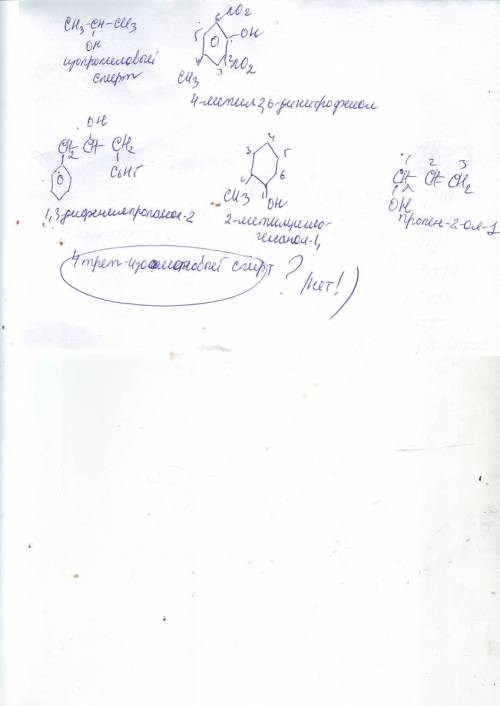 CH3-CH-CH3
OH
изопропиловый
спирт
NO2
5
OH
1
4
2
3
NO2
CH3
4-метил 2,6-динитрофенол
OH
CH2 CH - CH2
C6H5
1,3 дифенилпропанол-2
4
3
5
6
2
1
CH3
OH
2-метилцикло-
гексанол-1,
1 2 3
CH - CH - CH2
2
OH
пропен-2-ол-1
спирт ? (нет!)